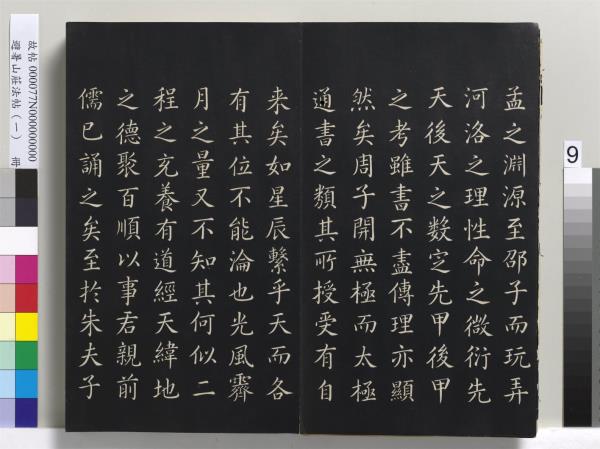 孟之淵源至邵子而玩弄
河洛之理性命之微衍先
天後天之数定先甲後甲
之考雖書不盡傳理亦顯
然矣周子開無極而太極
通書之類其所授受有自
来矣如星辰繫乎天而各
有其位不能淪也光風霽
月之量又不知其何似二
程之充養有道經天緯地
之德聚百順以事君親前
儒已誦之矣至於朱夫子
故帖 000077N000000000
避暑山莊法帖(一) 冊
9